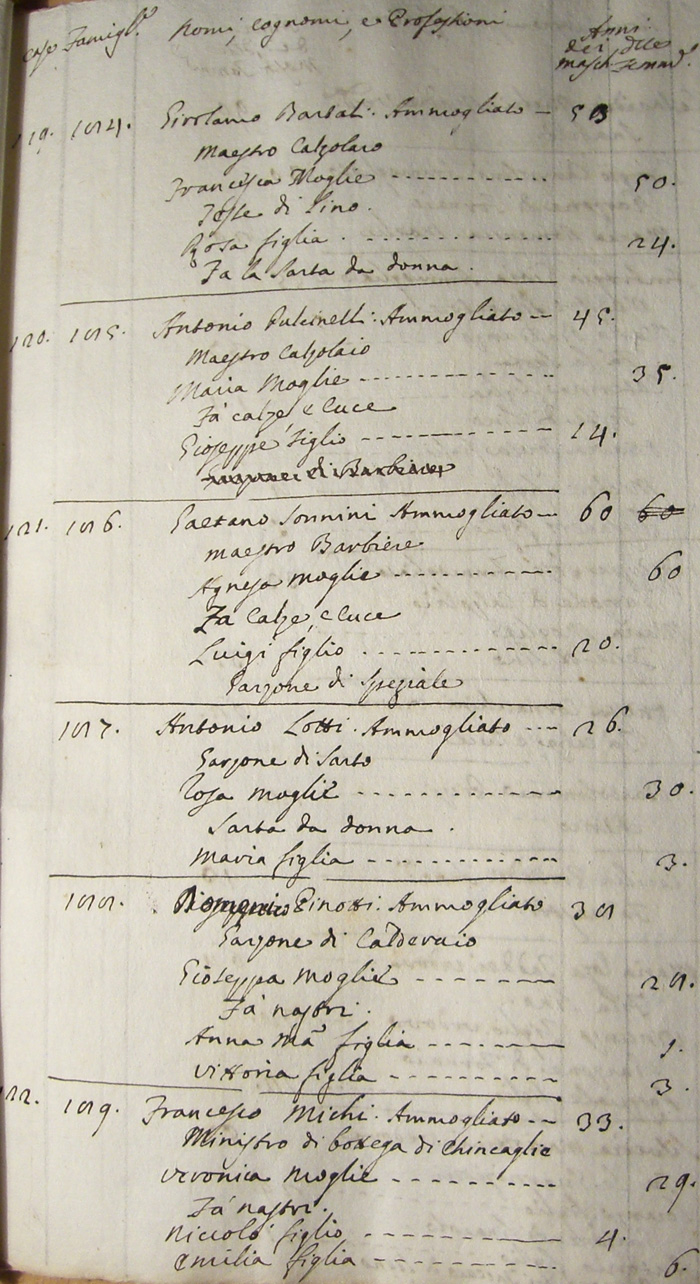 Case Famigl.e Nomi, Cognomi, e Professioni Anni dei masch. delle femm.e
119. 1084. Girolamo Barbati. Ammogliato — 58
Maestro Calzolaro
Francesca Moglie 50.
Tesse di Lino.
Rosa figlia. 24.
Fa la Sarta da donna.
120. 1085. Antonio Pulcinelli. Ammogliato — 45.
Maestro Calzolaio
Maria Moglie 35.
Fà calze e luce
Gioseppe figlio 14.
di Barbiere
121. 1086. Gaetano Sonnini Ammogliato — 60 60
maestro Barbiere
Agnesa moglie 60
Fa Calze, e luce
Luigi figlio 20.
Garzone di Speziale
1087. Antonio Lotti. Ammogliato 26.
Garzone di Sarto
Rosa moglie 30.
Sarta da donna.
Maria figlia 3.
1088. Domenico Pinotti. Ammogliato 38
Garzone di Calderaio
Gioseppa Moglie 28.
Fà nastri.
Anna Ma figlia 9.
Vittoria figlia 3.
122. 1089. Francesco Michi. Ammogliato 33.
Ministro di bottega di chincaglie
Veronica Moglie 29.
Fà nastri.
Niccolò figlio 4.
Emilia figlia 6.